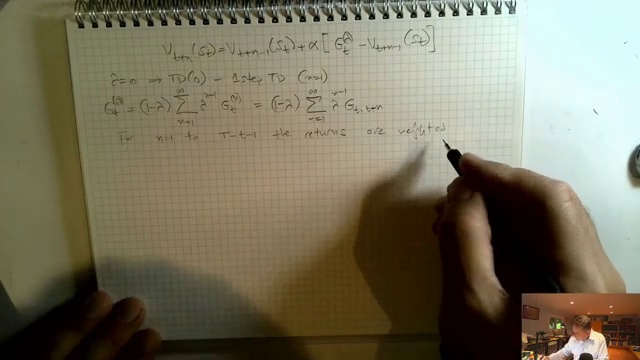 V_{t+n}(S_t) = V_{t+n-1}(S_t) + α [ G_t^λ − V_{t+n-1}(S_t) ]
λ=0 ⟹ TD(0) − 1 step TD (n=1)
G_t^{(λ)} = (1−λ) ∑_{n=1}^{∞} λ^{n−1} G_t^{(n)} = (1−λ) ∑_{n=1}^{∞} λ^{n−1} G_{t, t+n}
For n=1 to T−t−1 the returns are weighted